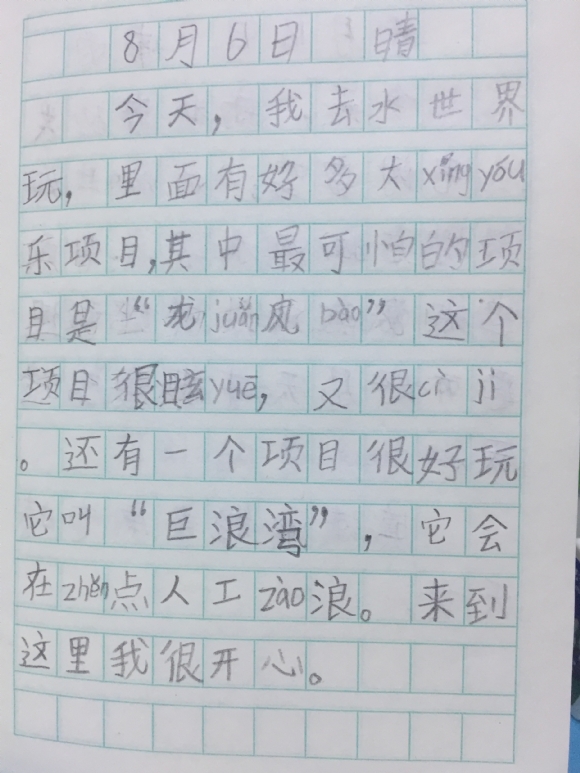 8月6日 晴
今天，我去水世界
玩，里面有好多大xíng yóu
乐项目，其中最可怕的项
目是“龙juǎn风bào”这个
项目很眩yuē，又很cì jī
。还有一个项目很好玩
它叫“巨浪湾”，它会
在zhěn点人工zào浪。来到
这里我很开心。